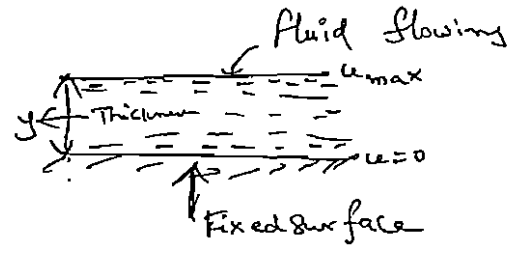 fluid flowing
umax
y
Thickness
u=0
Fixed surface